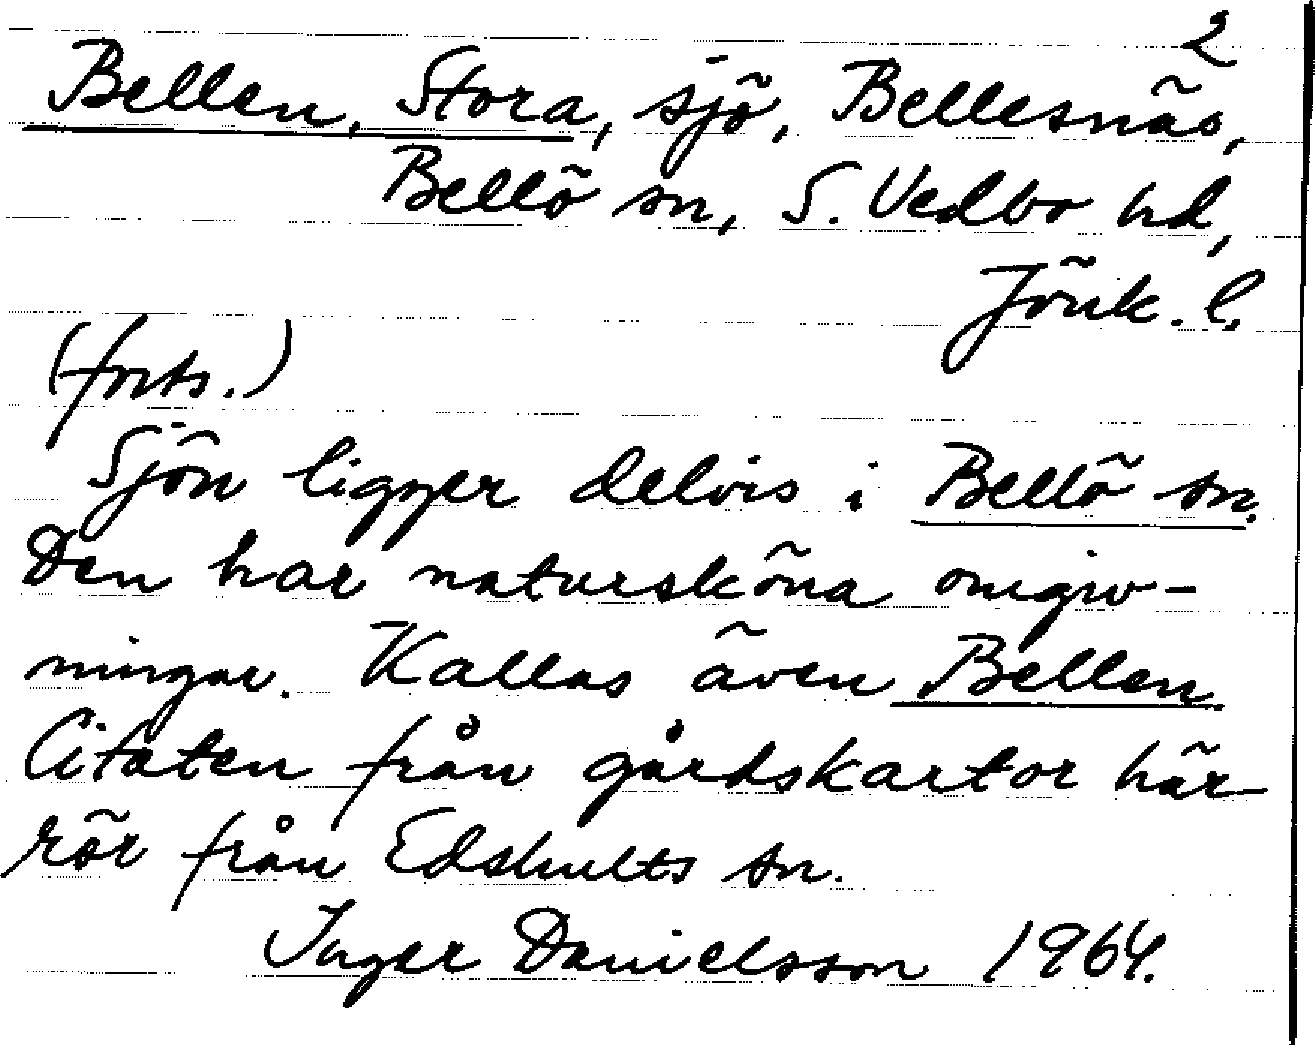 2
Bellen, Stora, sjö, Bellesnäs,
Bellö sn, S. Vedbo hd,
Jönk. l.
(forts.)
Sjön ligger delvis i Bellö sn.
Den har natursköna omgiv-
ningar. Kallas även Bellen.
Citaten från gårdskartor här-
rör från Edshults sn.
Inger Danielsson 1964.